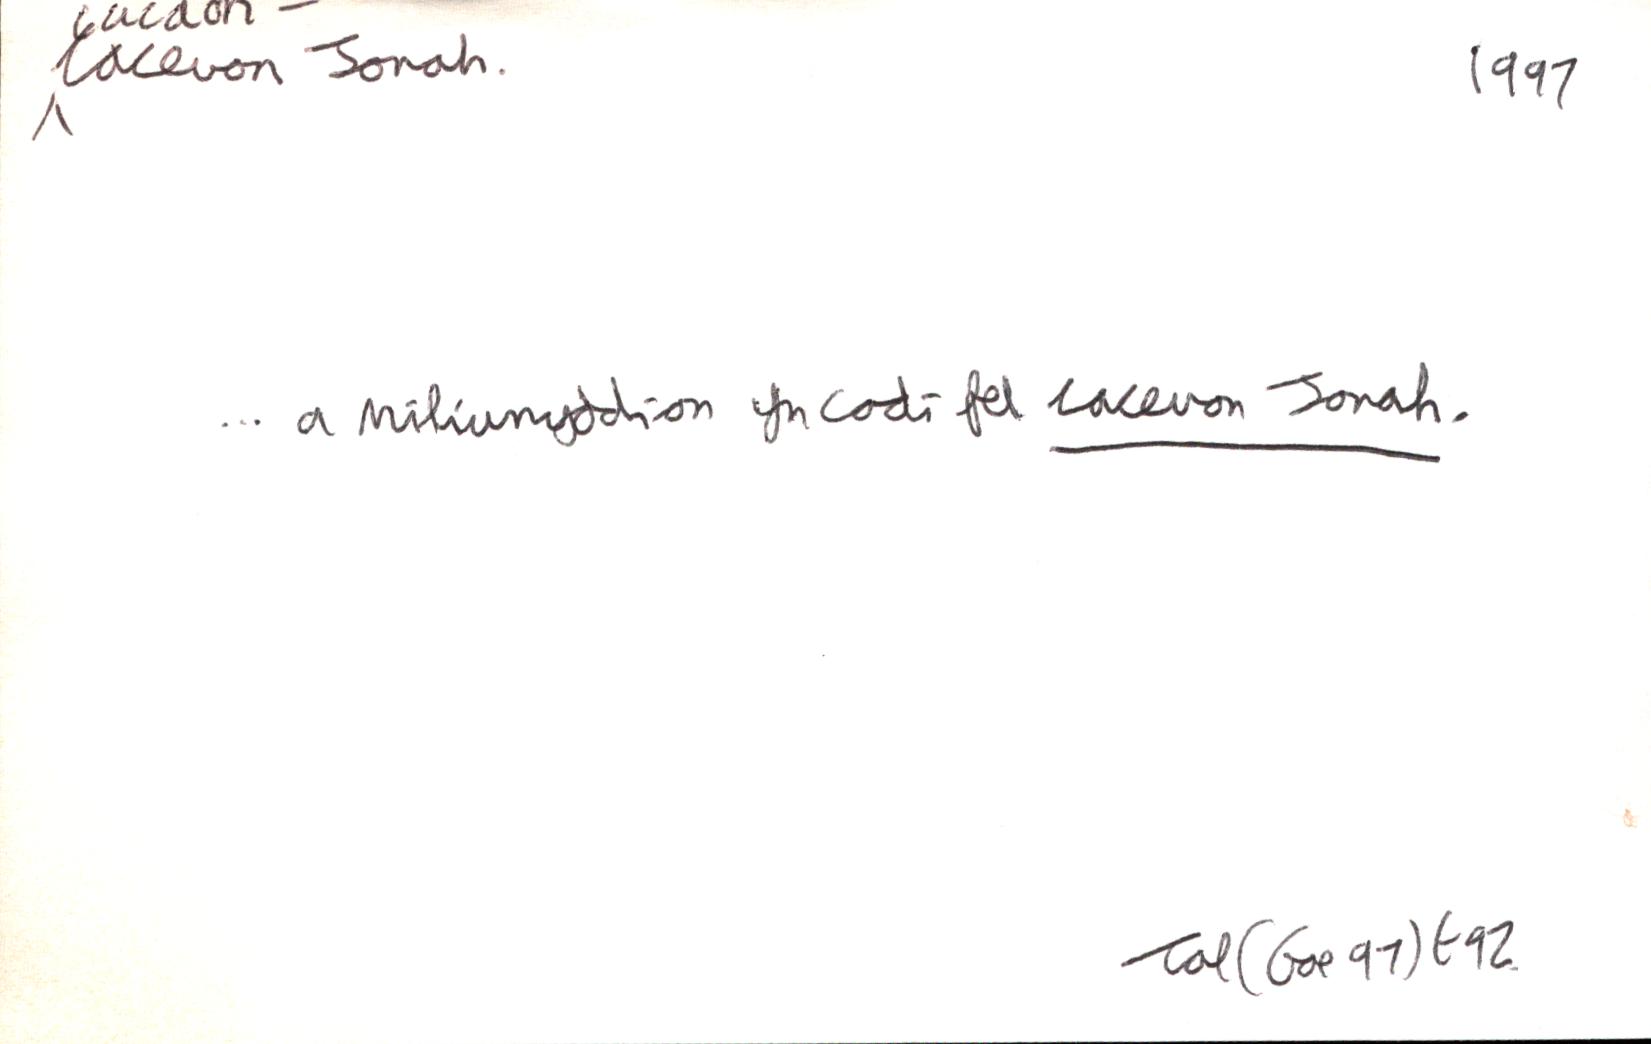 cacevon Jonah.
1997
... a miliunyddion yn codi fel cacevon Jonah.
Tal (Gae 97) t 92